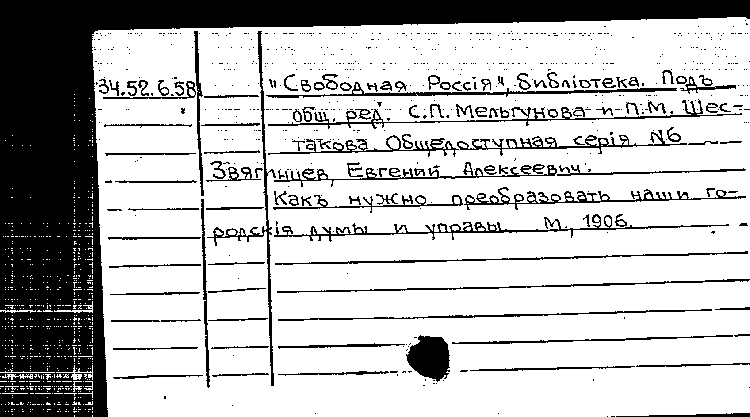 34.52.6.58 "Свободная Россія", библіотека. Подъ
общ. ред. С.П. Мельгунова и П.М. Шес-
такова Общедоступная серія N6
Звягинцев, Евгений Алексеевич.
Какъ нужно преобразовать наши го-
родскія думы и управы. М., 1906.